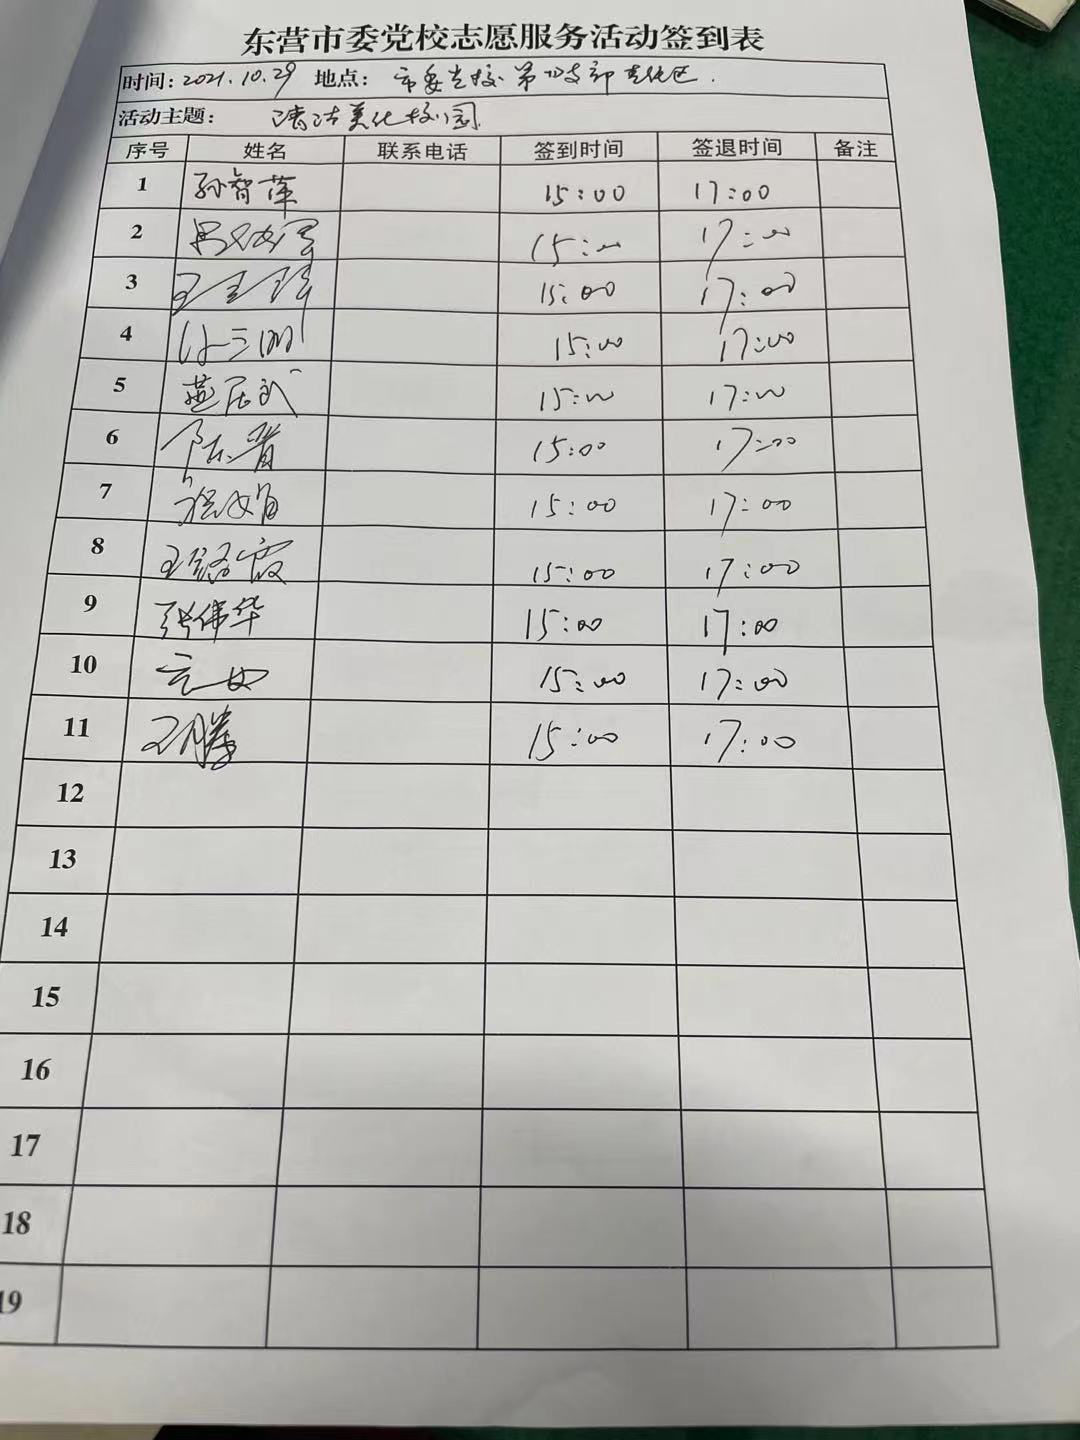 东营市委党校志愿服务活动签到表
时间：2021.10.29 地点：市委党校第四支部
活动主题：清洁美化校园
序号 姓名 联系电话 签到时间 签退时间 备注
1 孙智萍 15:00 17:00
2 15:00 17:00
3 15:00 17:00
4 15:00 17:00
5 15:00 17:00
6 陈晋 15:00 17:00
7 15:00 17:00
8 15:00 17:00
9 张伟华 15:00 17:00
10 15:00 17:00
11 王腾 15:00 17:00
12
13
14
15
16
17
18
19